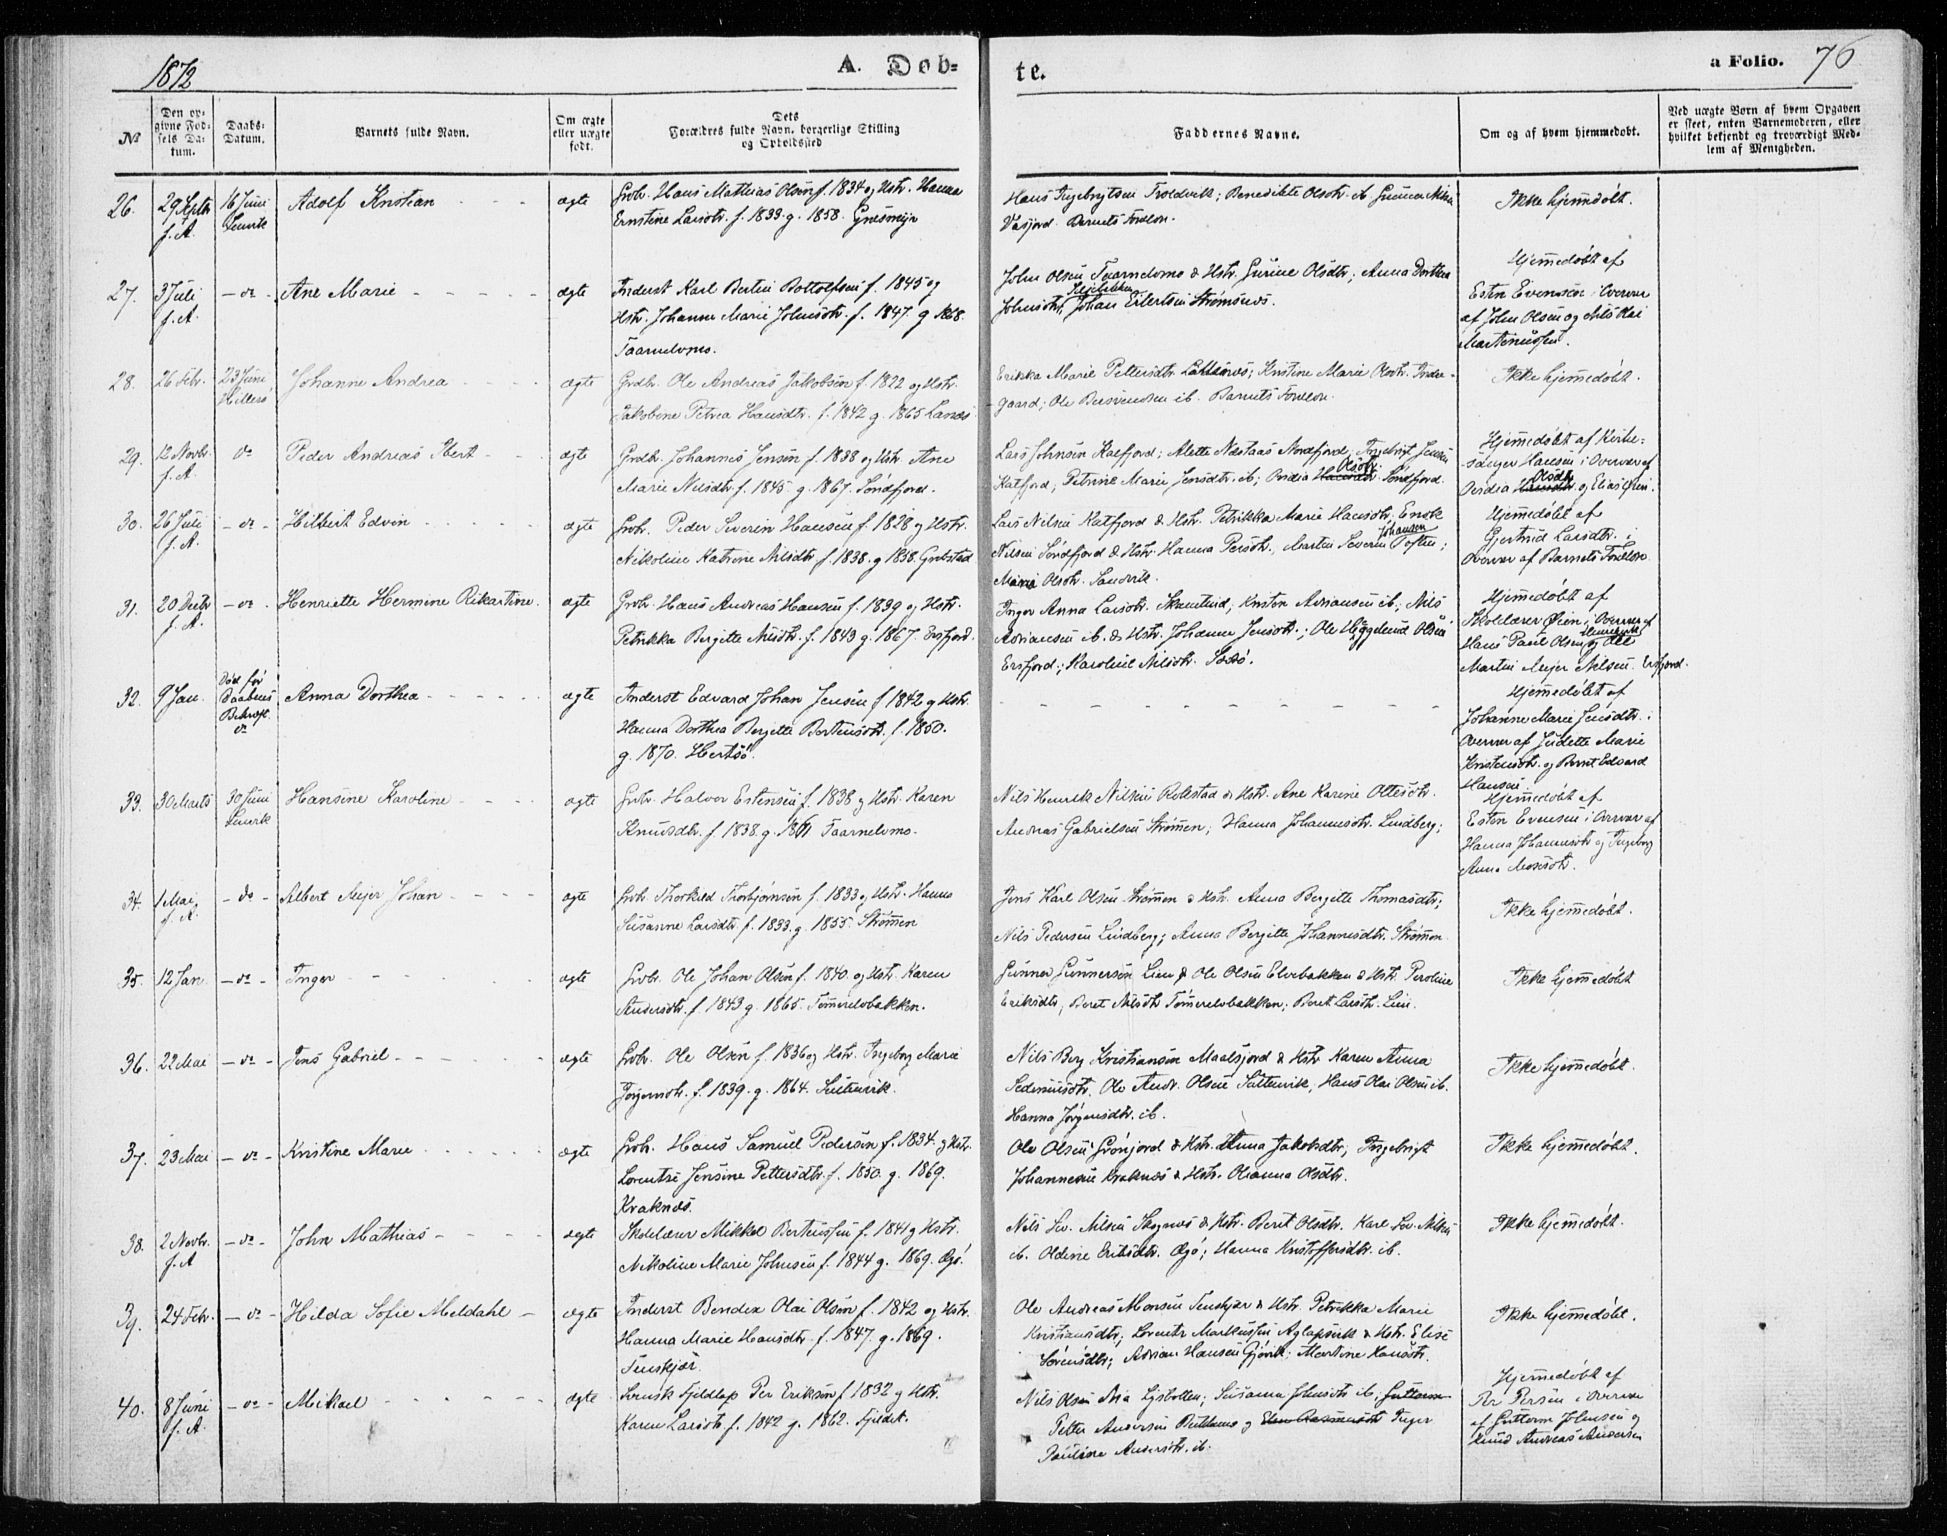 1872
A. Døb=
te.
a Folio. 76
No
Den op-
givne Fød-
sels Da-
tum.
Daabs-
Datum.
Barnets fulde Navn.
Om ægte
eller uægte
født.
Dets
Forældres fulde Navn, borgerlige Stilling
og Opholdssted
Faddernes Navne.
Om og af hvem hjemmedøbt.
Ved uægte Børn af hvem Opgaven
er skeet, enten Barnemoderen, eller
hvilket bekjendt og troværdigt Med-
lem af Menigheden.
26. 29 Septbr f. A. 16 Juni Adolf Kristian ægte
Grbr. Hans Mathias Olsen f. 1834 og Hstr. Hanna
Ernstine Larsdtr. f. 1833. g. 1858.
Hans Ingebrigtsen Troldvik; Benedikte Olsdtr. ib.
Vasjord. Barnets Forældre.
Ikke hjemmedøbt.
27. 3 Juli f. A. - do - Ane Marie ægte
Inderst Karl Bertin Bottolfsen f. 1845 og
Hstr. Johanne Marie Johnsdtr. f. 1847 g. 1868.
Taarnelvmo.
John Olsen Taarnelvmo & Hstr. Gurine Olsdtr; Anna Dorthea
Johnsdtr, Johan Eilertsen Strømsnes.
Hjemmedøbt af
Esten Evensen i Overvær
af John Olsen og Nils Olai
Martinussen.
28. 26 Febr. 23 Juni Hillesø Johanne Andrea ægte
Grdbr. Ole Andreas Jakobsen f. 1822 og Hstr.
Jakobine Petrea Hansdtr. f. 1842 g. 1865
Erikka Marie Pettersdtr.; Kristine Marie Olsdtr. Inder-
gaard; Ole ib. Barnets Forældre.
Ikke hjemmedøbt.
29. 12 Novbr. f. A. do Peder Andreas Ebert ægte
Grdbr. Johannes Jensen f. 1838 og Hstr. Ane
Marie Nilsdtr. f. 1845 g. 1867. Søndfjord.
Lars Johnsen Katfjord; Alette Nordfjord, Ingebrigt Jensen
Katfjord; Petrine Marie Jensdtr. ib; Olsdtr. Søndfjord.
Hjemmedøbt af Kirke=
sanger Hansen i Overvær af
Olsdtr. og Elias
30. 26 Juli f. A. - do - Hilbert Edvin ægte
Grbr. Peder Severin Hansen f. 1828 og Hstr.
Nikoline Katrine Nilsdtr f. 1838. g. 1858.
Lars Nilsen Katfjord & Hstr. Petrikka Marie Hansdtr. Enok
Nilsen Søndfjord & Hstr. Hanna Persdtr., Martin Severin Johansen Toften;
Olsdtr. Sandvik.
Hjemmedøbt af
Gjertrud Larsdtr. i
Overvær af Barnets Forældre.
31. 20 Decbr f. A. - do - Henriette Hermine Rikartine. ægte
Grbr. Hans Andreas Hansen f. 1839 og Hstr.
Petrikka Bergitte Nilsdtr. f. 1843 g. 1867. Ersfjord.
Inger Anna Larsdtr.; Kristen Adriansen ib.; Nils
Adriansen ib. & Hstr. Johanna Jensdtr.; Ole Hæggelund Olsen
Ersfjord; Karoline Nilsdtr.
Hjemmedøbt af
Skolelærer Øien i Overvær af
Hans Paul Olsen og
Martin Meyer Nilsen Ersfjord.
32. 9 Jan. Død før Daabens Bekræft. do Anna Dorthea ægte
Inderst Edvard Johan Jensen f 1842 og Hstr.
Hanna Dorthea Bergitte Bertinsdtr. f. 1850.
g. 1870. Hertsø.
Hjemmedøbt af
Johanne Marie Jensdtr. i
Overvær af Marie
Kristensdtr. og Bernt Edvard
Hansen.
33. 30 Marts 30 Juni Hansine Karoline ægte
Grbr. Halvor Estensen f. 1838 og Hstr. Karen
Knudsdtr. f. 1838. g. 1861 Taarnelvmo.
Nils Henrik Nilsen Rolstad & Hstr. Ane Karine Ottesdtr.
Andreas Gabrielsen Strømmen; Hanna Johannesdtr. Lindberg;
Hjemmedøbt af
Esten Evensen i Overvær af
Hanna Johannesdtr og Ingeborg
Anna Mosesdtr.
34. 1 Mai f. A. - do - Albert Meyer Johan ægte
Grbr. Thorkild Thorbjørnsen f. 1833 og Hstr. Hanna
Susanne Larsdtr. f. 1833. g. 1855. Strømmen
Jens Karl Olsen Strømmen & Hstr. Anna Bergitte Thomasdtr;
Nils Pedersen Lindberg; Anna Bergitte Johannesdtr. Strømmen
Ikke hjemmedøbt.
35. 12 Jan. - do - Inger ægte
Grbr. Ole Johan Olsen f. 1840. og Hstr. Karen
Andersdtr. f. 1843 g. 1865. Tømmerelvbakken.
Gunnar Gunnersen Lien & Ole Olsen Elvebakken & Hstr. Peroline
Eriksdtr; Beret Nilsdtr Tømmerelvbakken; Beret Larsdtr. Lien.
Ikke hjemmedøbt
36. 22 Mai - do - Jens Gabriel ægte
Grbr. Ole Olsen f. 1836 og Hstr. Ingeborg Marie
Jørgensdtr. f. 1839. g. 1864. Sultenvik.
Nils Berg Kristiansen Maalsjord & Hstr Karen Anna
Ole Andr. Olsen Sultenvik, Hans Olai Olsen ib.
Hanna Jørgensdtr. ib.
Ikke hjemmedøbt.
37. 23 Mai - do - Kristine Marie ægte
Grbr. Hans Samuel Pedersen f. 1834. og Hstr.
Lorentse Jensine Pettersdtr. f. 1850. g. 1869.
Kraknæs.
Ole Olsen Grønjord & Hstr. Anna Jakobsdtr; Ingebrigt
Johannesen Kraknæs & Hstr. Olianna Olsdtr.
Ikke hjemmedøbt.
38. 2 Novbr. f. A - do - John Mathias ægte
Skolelærer Mikkel Bertheussen f. 1841 og Hstr.
Nikoline Marie Johnsen f. 1844 g. 1869.
Nils Sev. Nilsen & Hstr. Berit Olsdtr. Karl Sev. Nilsen
ib. Oldine Eriksdtr.; Hanna Kristoffersdtr. ib.
Ikke hjemmedøbt.
39. 24 Febr. - do - Hilda Sofie Meldahl ægte
Inderst Bendix Olai Olsen f. 1842 og Hstr.
Hanna Marie Hansdtr. f. 1847. g. 1869.
Tenskjær.
Ole Andreas Monsen Tenskjær & Hstr. Petrikka Marie
Kristiansdtr; Lorents Markussen Aglapsvik & Hstr. Elise
Sørensdtr; Adrian Hansen Gjøvik; Martine Hansdtr.
Ikke hjemmedøbt.
40. 8 Juni f. A. - do - Mikael ægte
Svensk Fjeldlap Per Eriksen f. 1832 og Hstr.
Karen Larsdtr f. 1842 g. 1862. Fjeldet.
Nils Olsen; Susanna Johnsdtr ib;
Petter Andersen og Inger
Pauline Andersdtr. ib.
Hjemmedøbt af
Per Persen i Overvær
af Guttorm Johnsen og
Knud Andreas Andersen